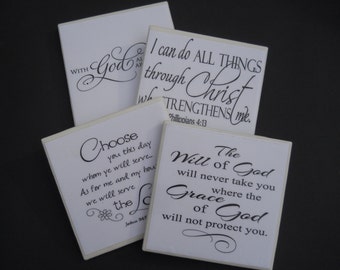 With God
I can do ALL THINGS
through Christ
STRENGTHENS me.
Philippians 4:13
Choose
you this day
whom ye will serve...
As for me and my hou
we will serve
the Lo
The
Will of God
will never take you
where the
Grace of God
will not protect you.